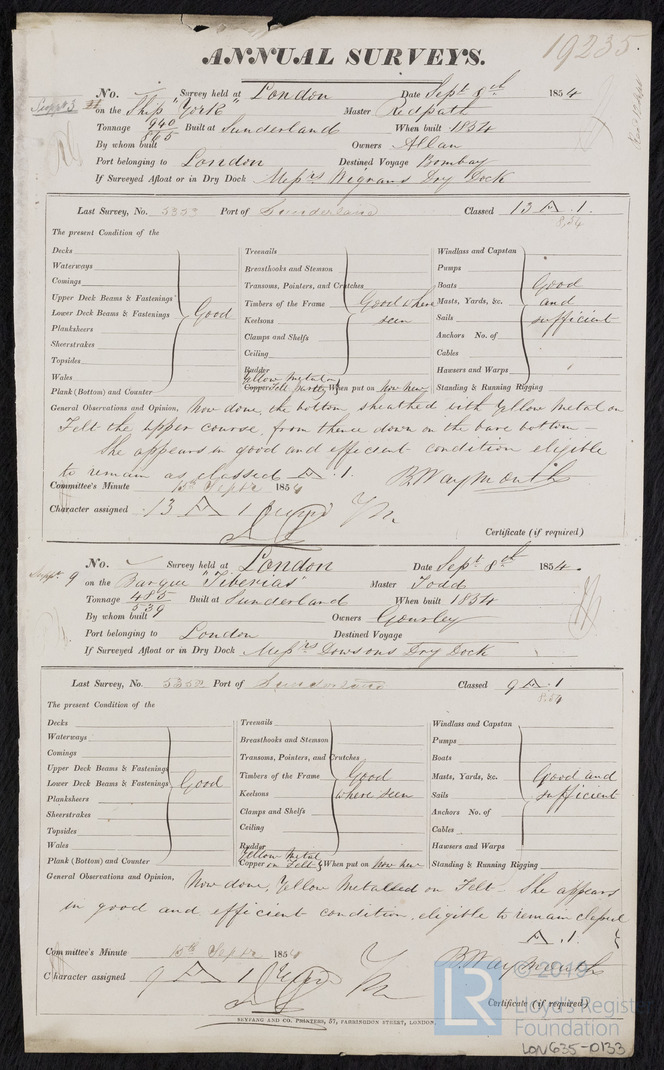 19235.
ANNUAL SURVEYS.
No. Survey held at London Date Sept 8th 1854
on the Ship "York" Master Redpath
Tonnage 940 / 865 Built at Sunderland When built 1854
By whom built Owners Allan
Port belonging to London Destined Voyage Bombay
If Surveyed Afloat or in Dry Dock Messrs Wigrams Dry Dock
Last Survey, No. 5353 Port of Sunderland Classed 13 A.1.
8,54
The present Condition of the
Decks Treenails Windlass and Capstan
Waterways Breasthooks and Stemson Pumps
Comings Transoms, Pointers, and Crutches Boats Good
Upper Deck Beams & Fastenings Timbers of the Frame Good where Masts, Yards, &c. and
Lower Deck Beams & Fastenings Good Keelsons seen Sails sufficient
Planksheers Clamps and Shelfs Anchors No. of
Sheerstrakes Ceiling Cables
Topsides Rudder Hawsers and Warps
Wales Yellow Metal on
Plank (Bottom) and Counter Copper Felt partly When put on Now New Standing & Running Rigging
General Observations and Opinion, Now done, the bottom sheathed with Yellow Metal on
Felt the upper course, from thence down on the bare bottom –
She appears in good and efficient condition eligible
to remain as classed A.1. B. Waymouth
Committee's Minute 15th Septr 1854
Character assigned 13 A 1
Certificate (if required)
No. Survey held at London Date Sept 8th 1854.
Sept. 9 on the Barque "Tiberias" Master Todd
Tonnage 485 / 539 Built at Sunderland When built 1854
By whom built Owners Gourley
Port belonging to London Destined Voyage
If Surveyed Afloat or in Dry Dock Messrs Dowsons Dry Dock
Last Survey, No. 5353 Port of Sunderland Classed 9 A.1
8,59
The present Condition of the
Decks Treenails Windlass and Capstan
Waterways Breasthooks and Stemson Pumps
Comings Transoms, Pointers, and Crutches Boats
Upper Deck Beams & Fastenings Timbers of the Frame Good Masts, Yards, &c. Good and
Lower Deck Beams & Fastenings Good Keelsons where seen Sails sufficient
Planksheers Clamps and Shelfs Anchors No. of
Sheerstrakes Ceiling Cables
Topsides Rudder Hawsers and Warps
Wales Yellow Metal
Plank (Bottom) and Counter Copper on Felt When put on Now New Standing & Running Rigging
General Observations and Opinion, Now done, Yellow Metalled on Felt – She appears
in good and efficient condition, eligible to remain classed
A.1.
Committee's Minute 15th Septr 1854 B. Waymouth
Character assigned 9 A 1
Certificate (if required)
SEYFANG AND CO. PRINTERS, 57, FARRINGDON STREET, LONDON.
LR
© 2019
Lloyd's Register
Foundation
LON635-0133